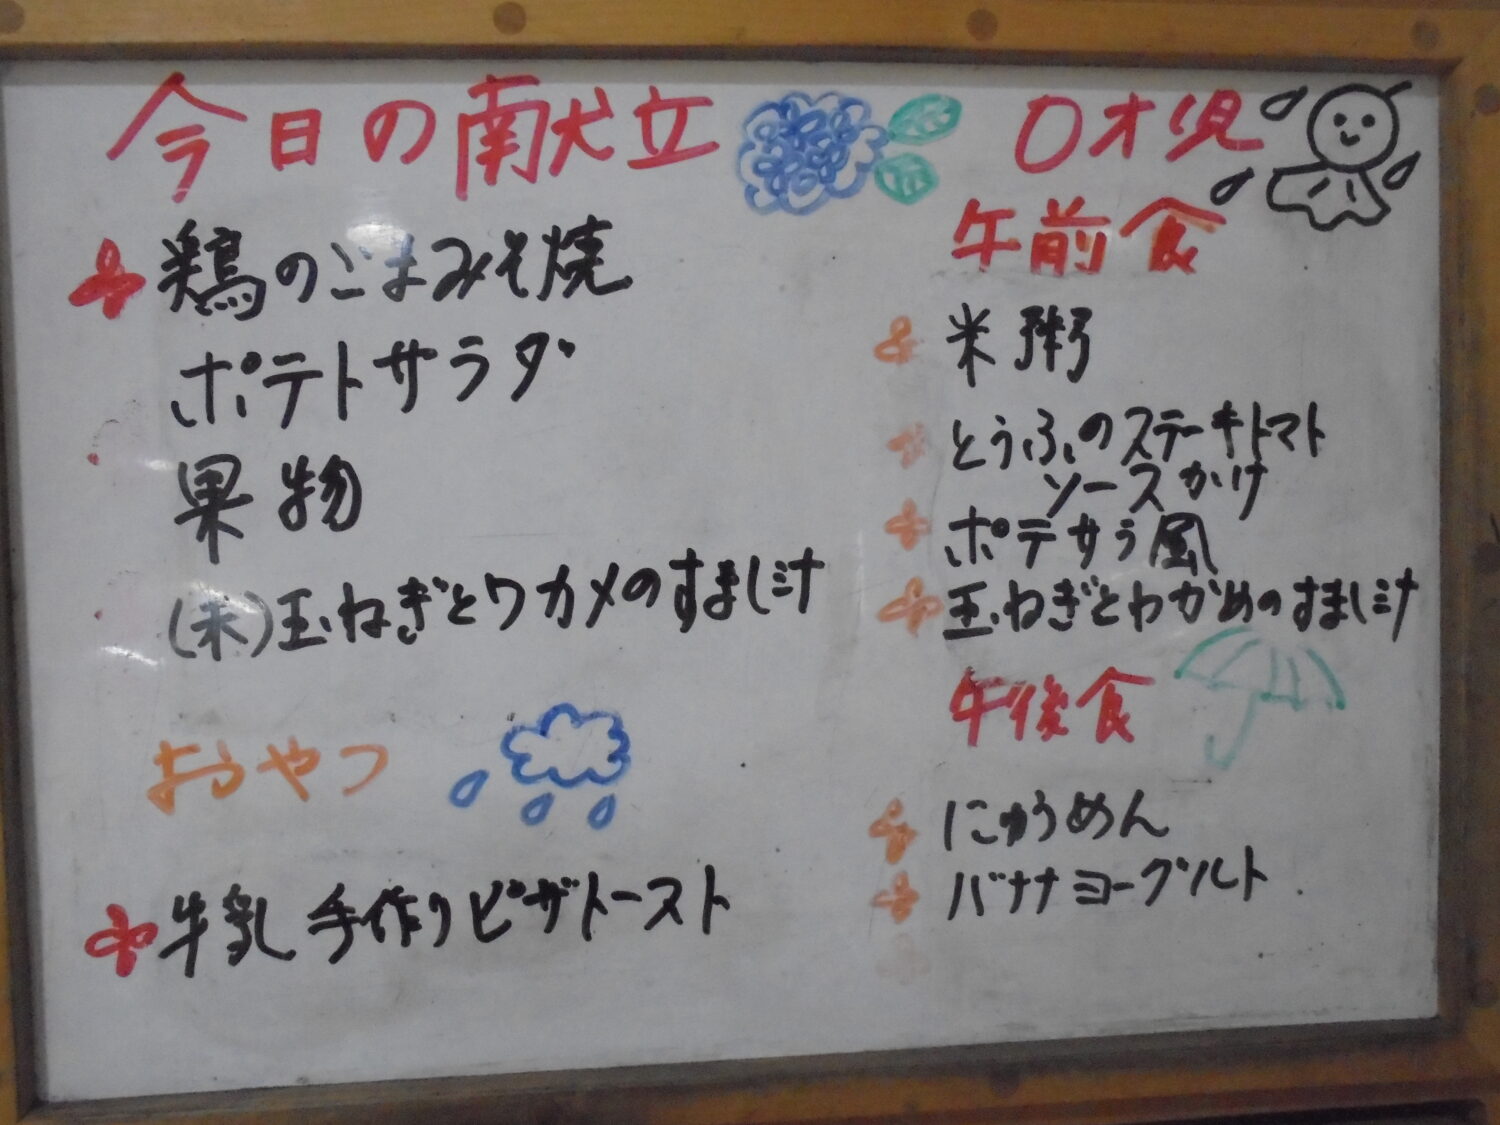 今日の献立
鶏のごまみそ焼
ポテトサラダ
果物
(未)玉ねぎとワカメのすまし汁
おやつ
牛乳 手作りピザトースト
0才児
午前食
米粥
とうふのステーキトマト
ソースかけ
ポテサラ風
玉ねぎとわかめのすまし汁
午後食
にゅうめん
バナナヨーグルト